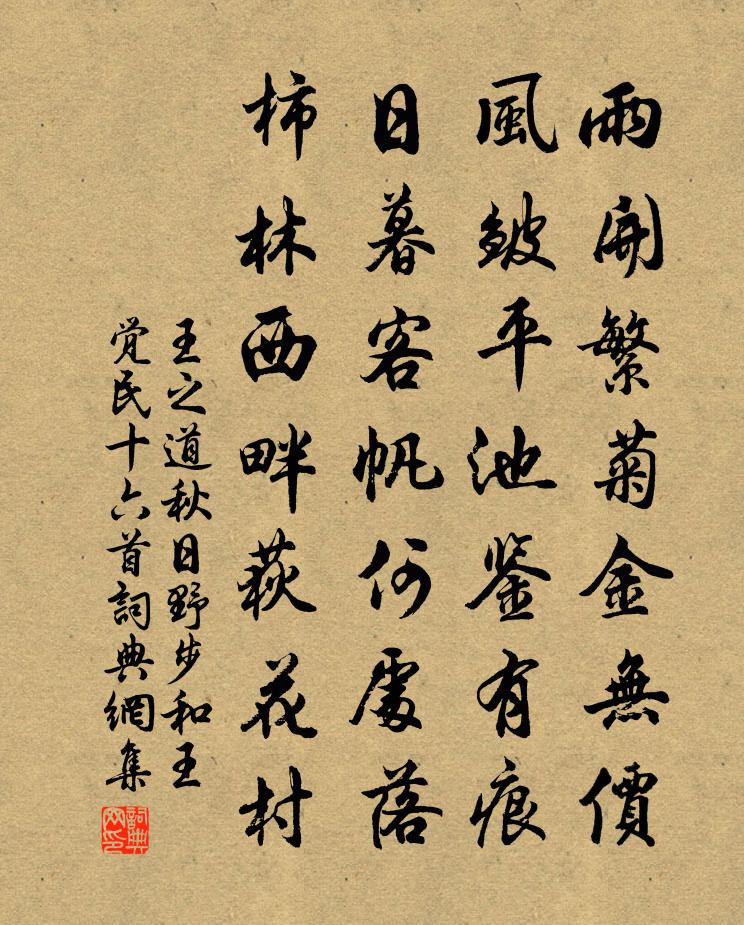 雨開繁菊金無價
風皴平池鑒有痕
日暮客帆何處落
柿林西畔荻花村
王之道秋日野步和王
覚民十六首詞典網集
詞典网印